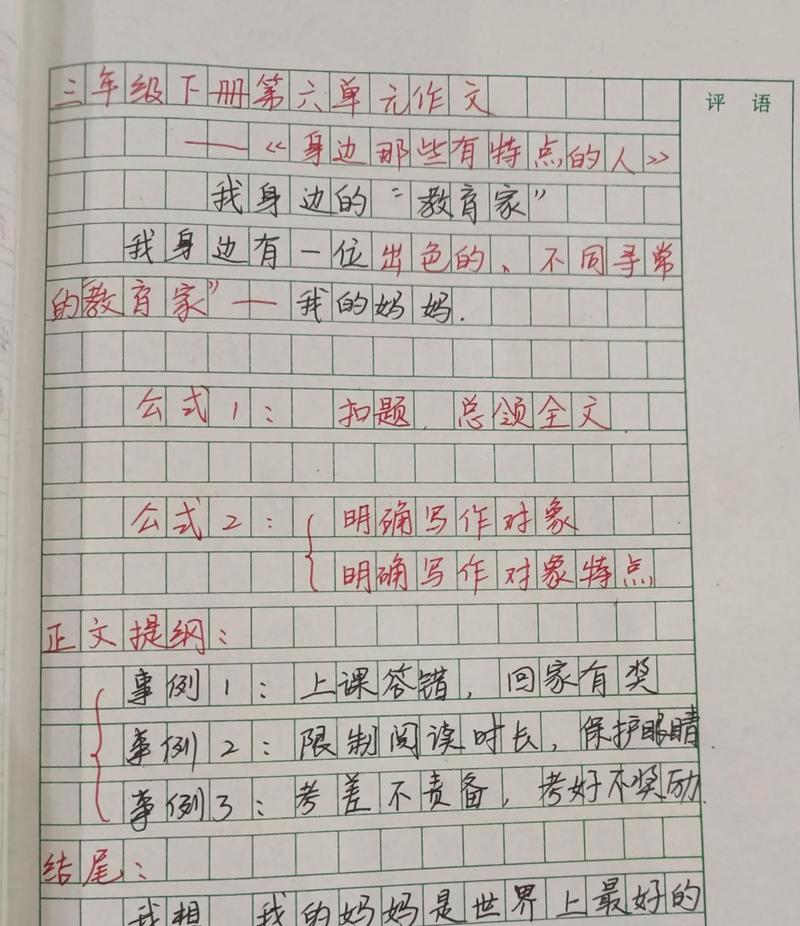 评 语
三年级下册第六单元作文
——《身边那些有特点的人》
我身边的“教育家”
我身边有一位出色的、不同寻常
的教育家”——我的妈妈.
公式1： 扣题，总领全文
公式2： 明确写作对象
明确写作对象特点
正文提纲：
事例1：上课答错，回家有奖
事例2：限制阅读时长，保护眼睛
事例3：考差不责备，考好不奖励.
结尾：
我想，我的妈妈是世界上最好的